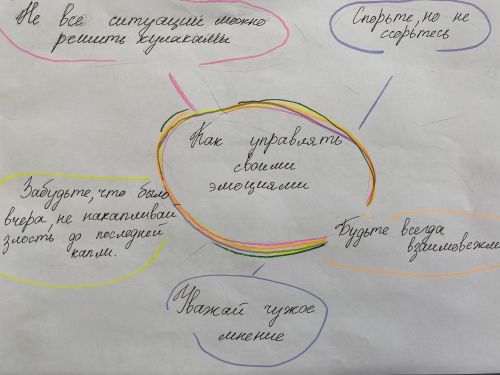 Не все ситуации можно
решить кулаками
Спорьте, но не
ссорьтесь
Как управлять
своими
эмоциями
Забудьте, что было
вчера, не накапливай
злость до последней
капли.
Будьте всегда
взаимовежли
Уважай чужое
мнение